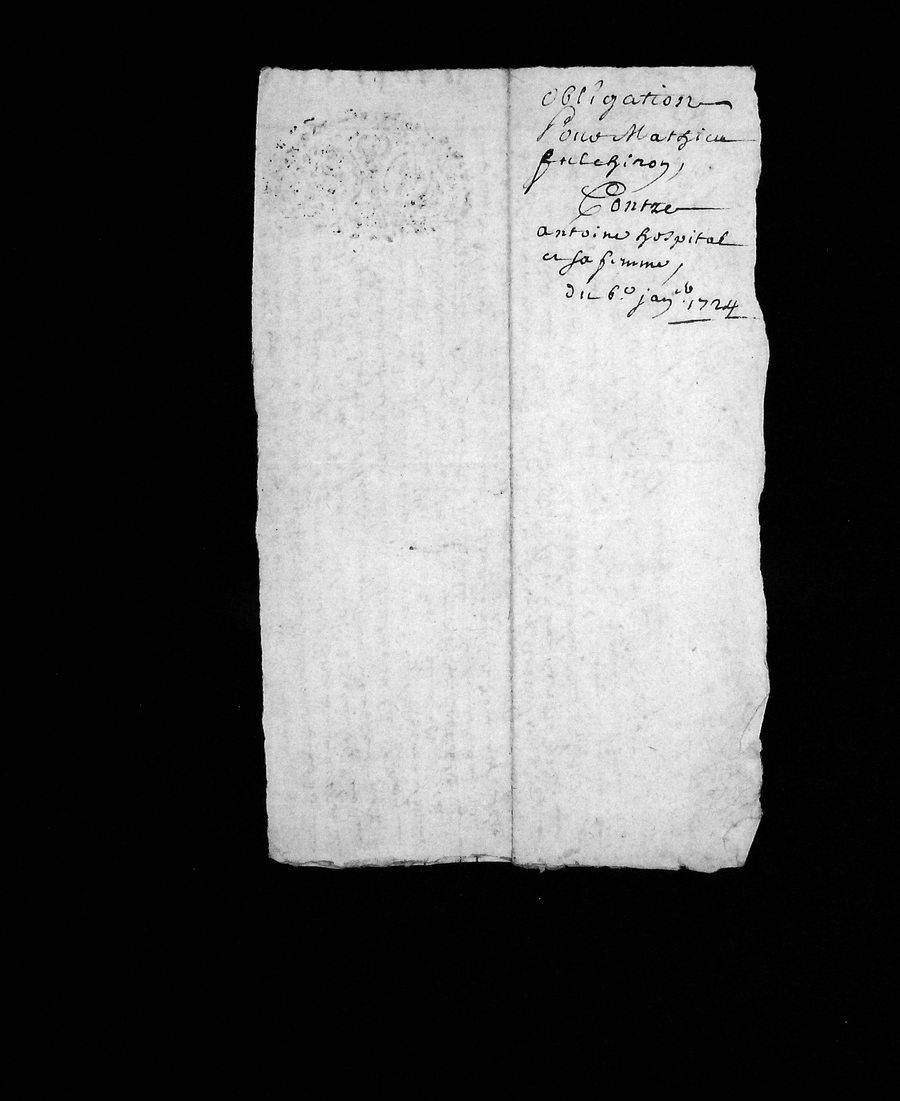 obligation
Pour Mathieu
fulchiron,
Contre
antoine hospital
et sa femme,
du 6.e janv.er 1724